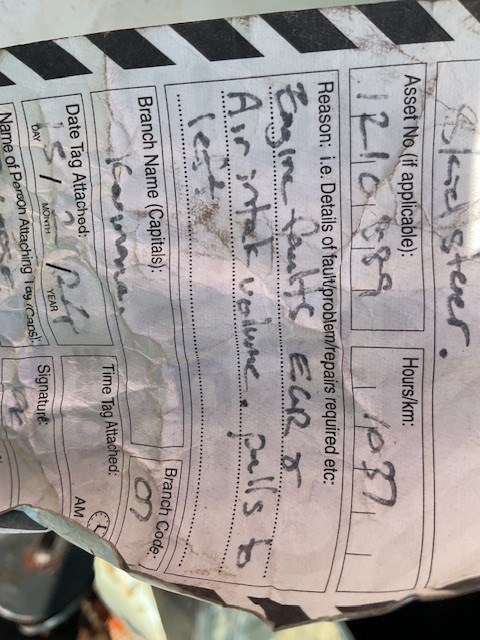 Skid steer.
Asset No. (if applicable): Hours/km:
1210889 1037
Reason: i.e. Details of fault/problem/repairs required etc:
Engine faults EGR &
Air intak volume. pulls to
left
Branch Name (Capitals): Branch Code:
07
Date Tag Attached: Time Tag Attached:
DAY MONTH YEAR AM
Name of Person Attaching Tag (Caps): Signature